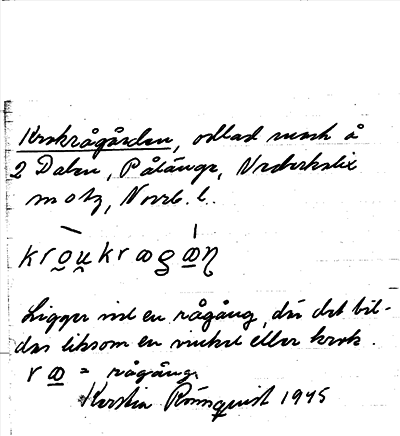 Krokrågården, odlad mark å
2 Dalen, Pålänge, Nederkalix
sn o tg, Norrb. l.
Ligger vid en rågång, där det bil-
das liksom en vinkel eller krok.
= rågång
Kerstin Rönnquist 1945